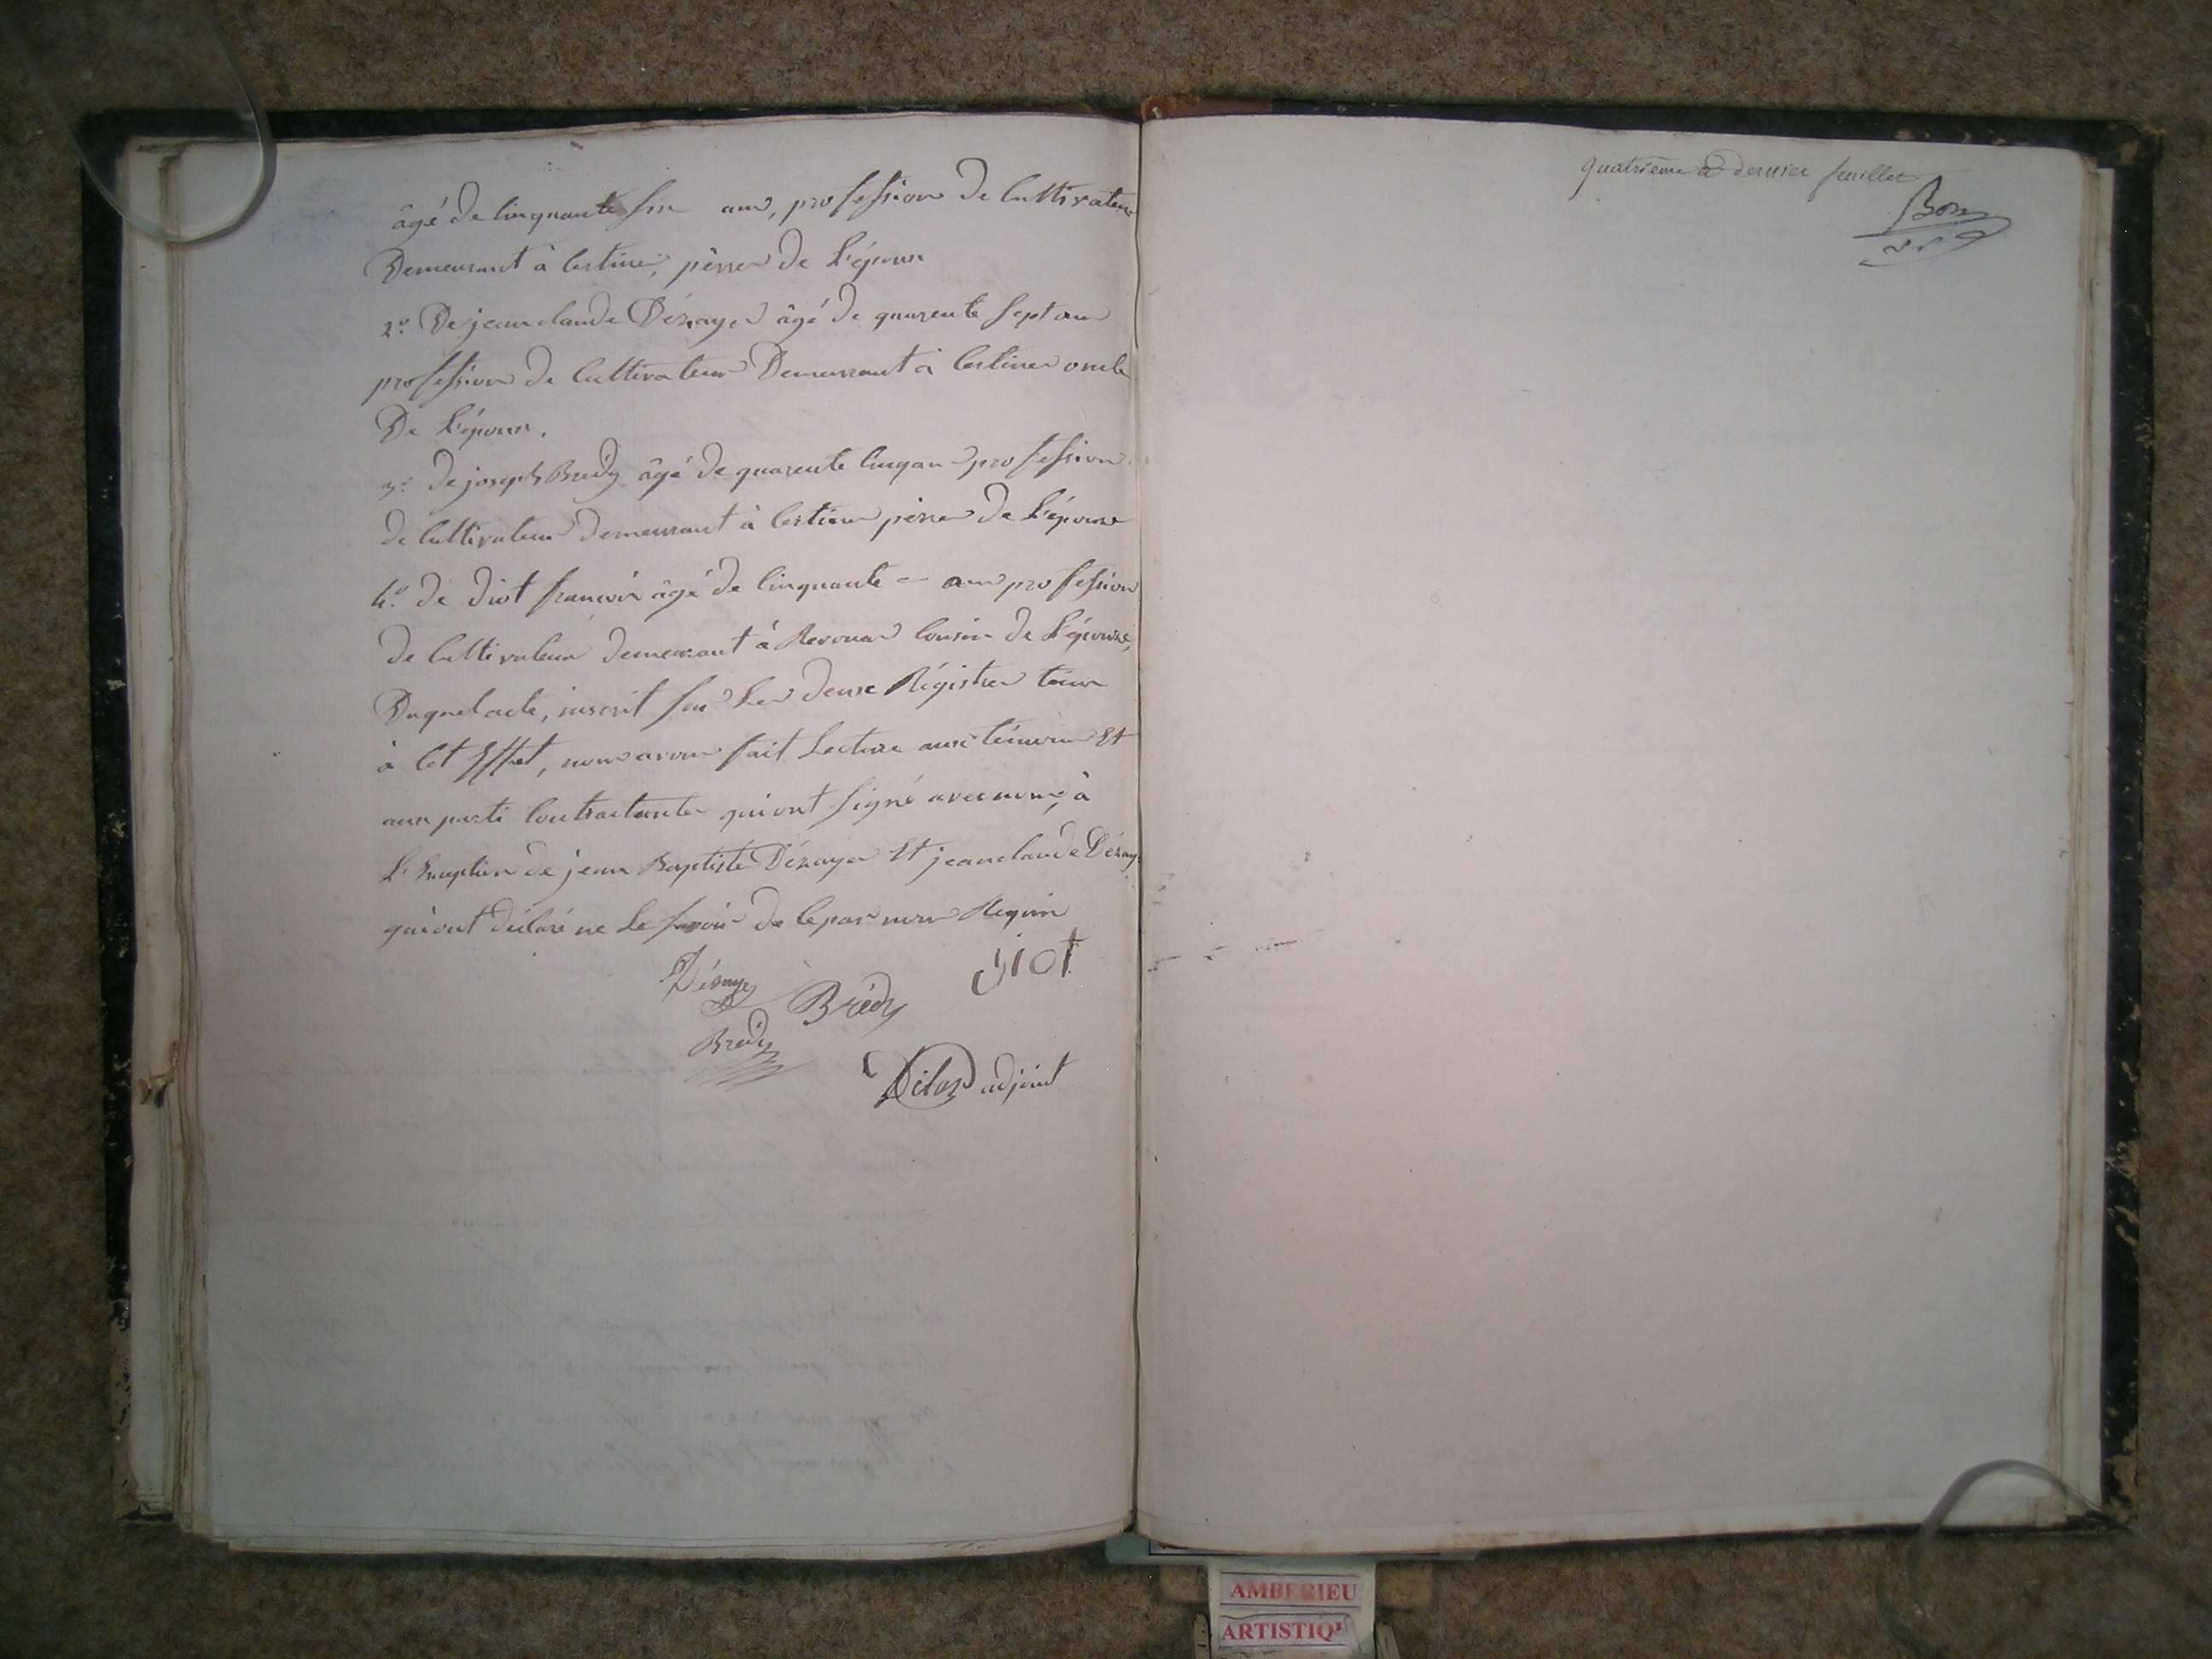 âgé de Cinquante six ans, profession de Cultivateur
Demeurant à Certines, pèrre de L'époux
2.° De jean claude Dézayer âgé de quarente sept ans
profession de Cultivateur Demeurrant à Certines oncle
De L'époux.
3.° de joseph Bredy âgé de quarente Cinq ans profession
de Cultivateur demeurrant à Certines pèrre de L'épouse
4.° de diot francois âgé de Cinquante = ans profession
de Cultivateur demeurant à Revonas Cousin de L'épouse,
Duquel acte, inscrit sur Les deux Régistres tenus
à Cet Effet, nous avons fait Lecture aux témoins Et
aux parti Contractantes qui ont signé avec nous, à
L'Exception de jean Baptiste Dézayer Et jean claude Dézay
qui ont déclaré ne Le savoir de Ce par nous Requis
Dézayer Brédy diot
Bredy
adjoint
quatrième et dernier feuillet